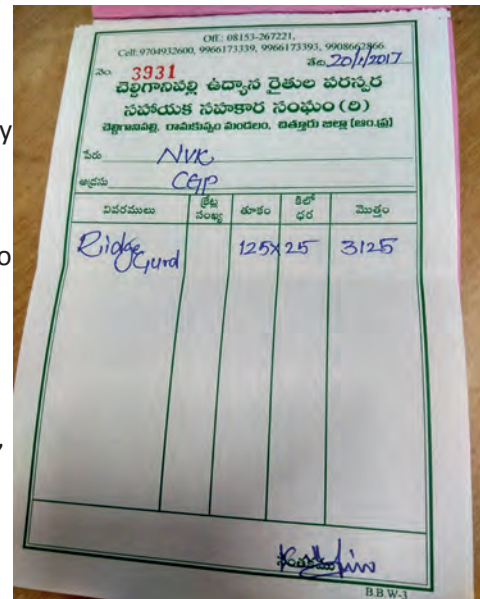 Off.: 08153-267221,
Cell: 9704932600, 9966173339, 9966173393, 9908662866
నెం. 3931 తేది. 20/1/2017
చెల్దిగానిపల్లి ఉద్యాన రైతుల పరస్పర
సహాయక సహకార సంఘం (లి)
చెల్దిగానిపల్లి, రామకుప్పం మండలం, చిత్తూరు జిల్లా [ఆం.ప్ర]
పేరు NVK
అడ్రసు CGP
వివరములు క్రేట్ల సంఖ్య తూకం కిలో ధర మొత్తం
Ridge Gurd 125 X 25 3125
సంతకము
B.B.W-3
y
o
,